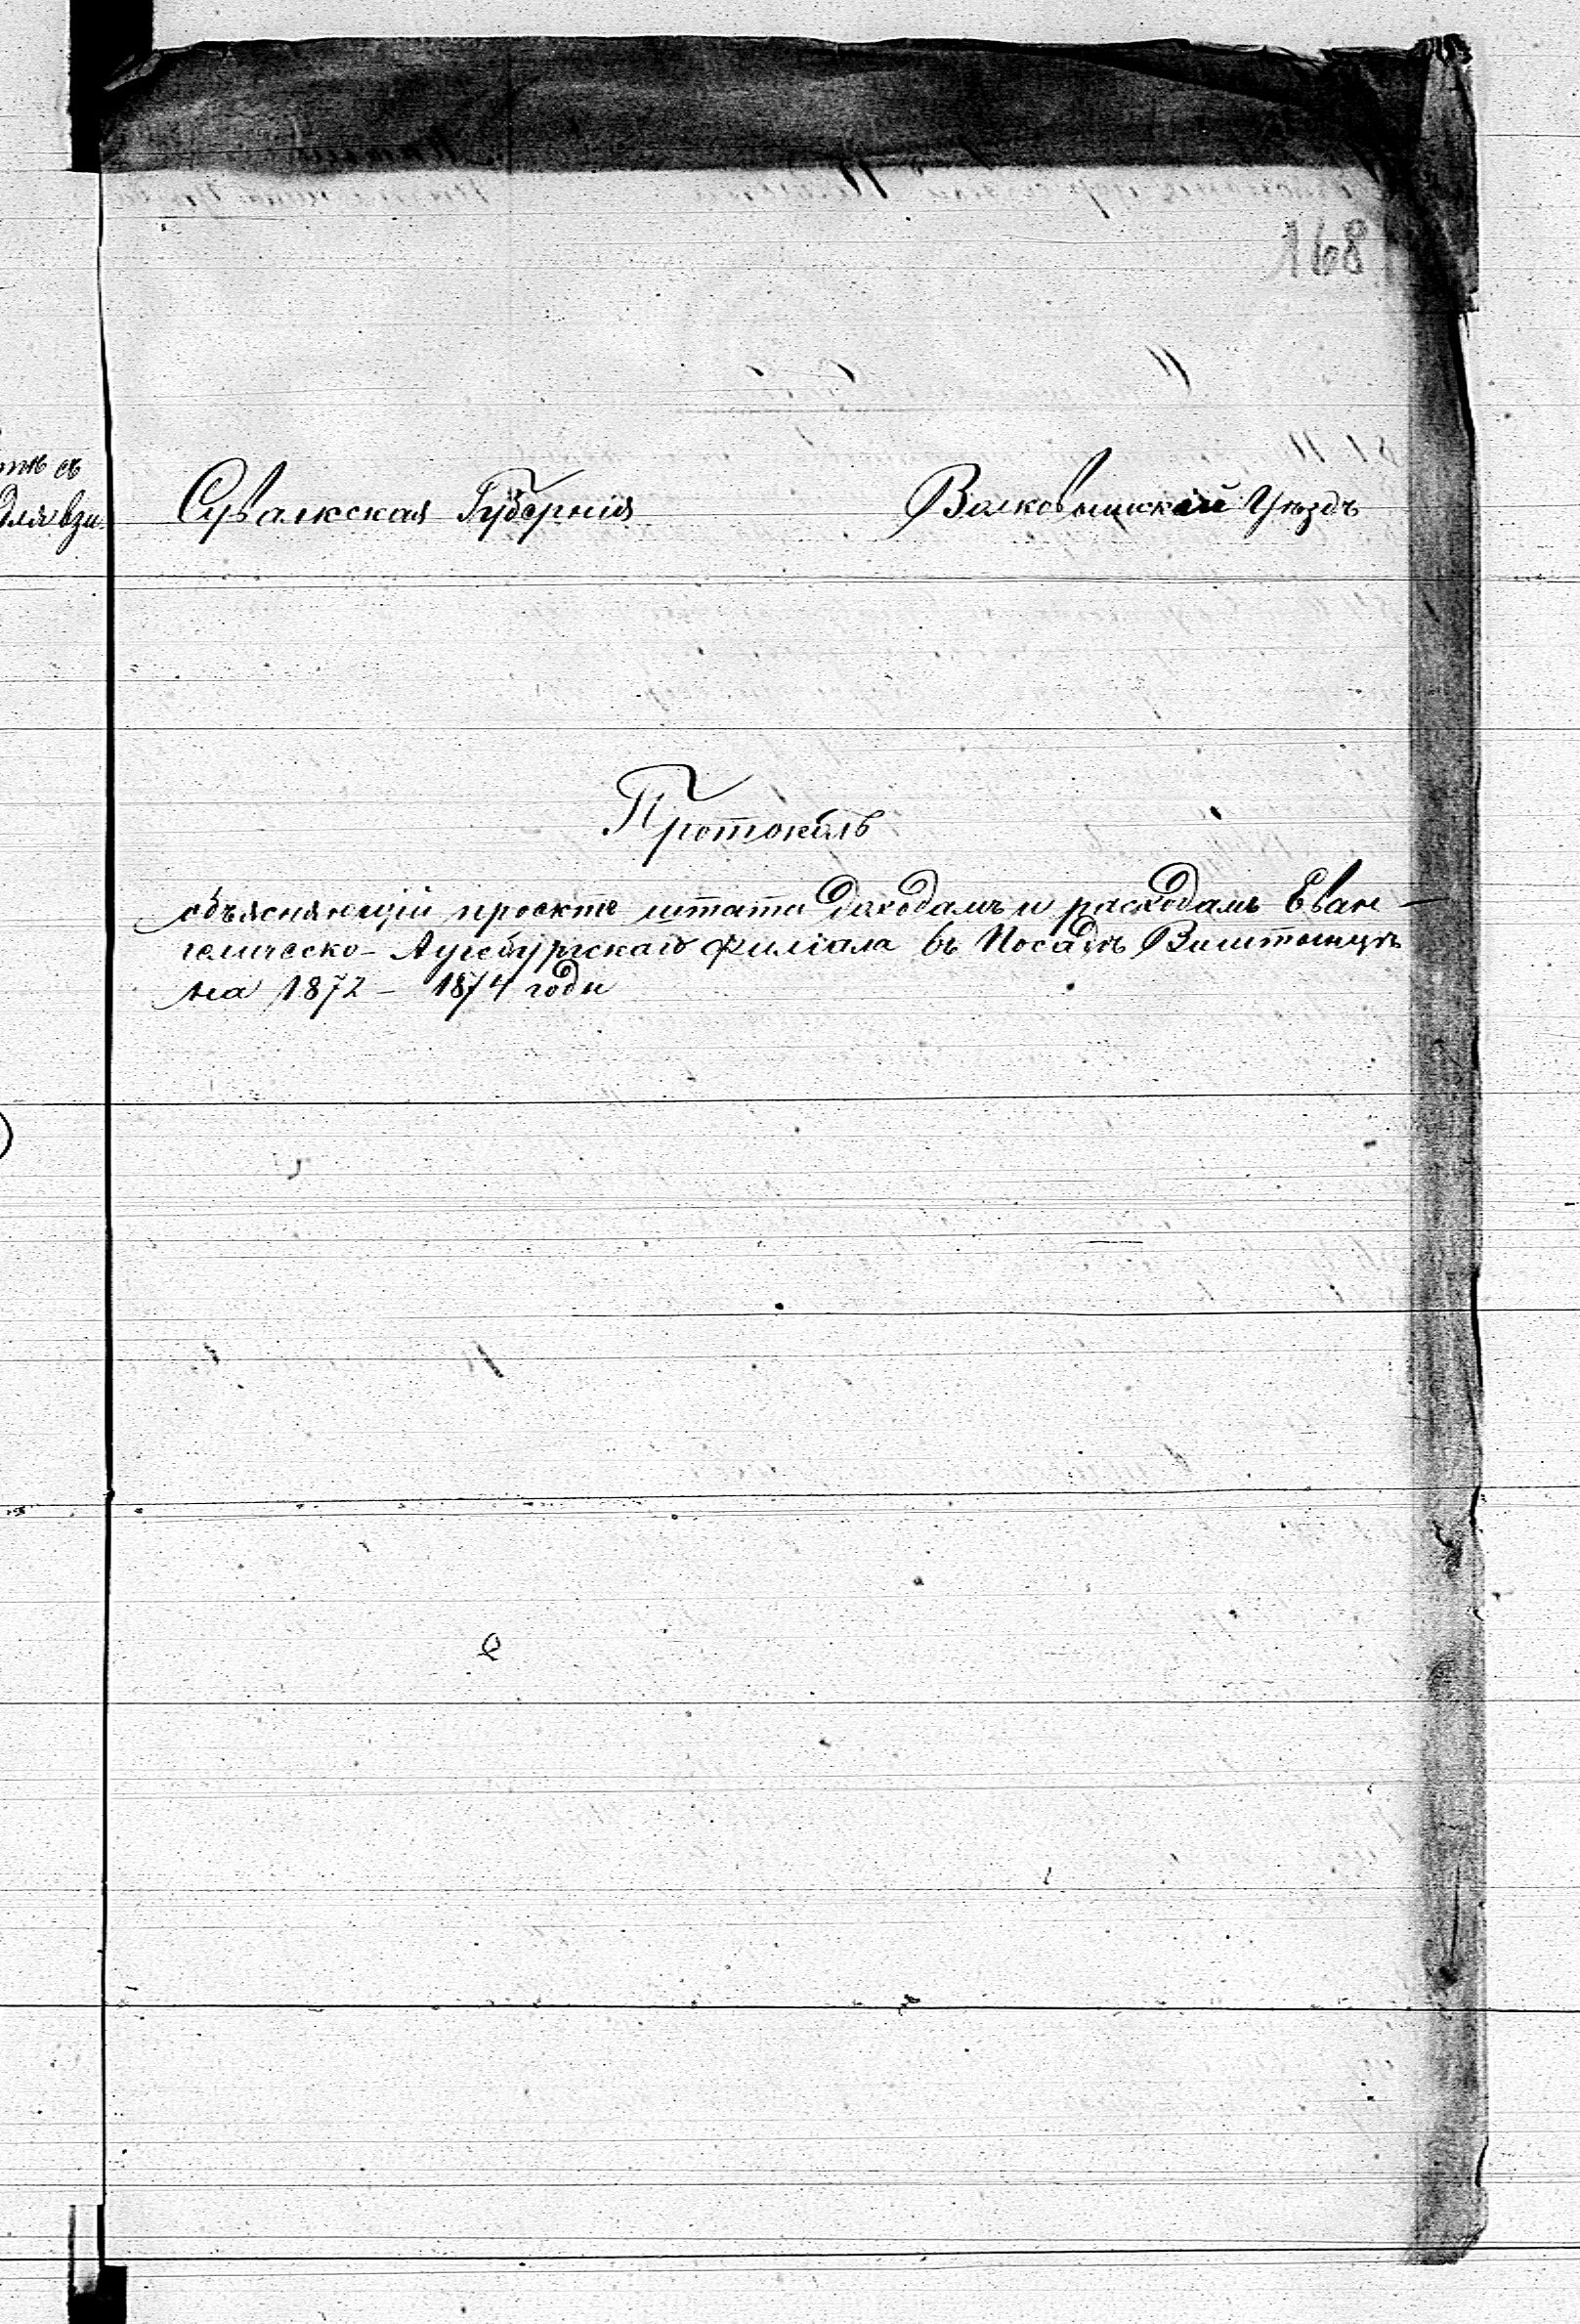 168
Сувалкская Губернія
Волковышскій Уѣздъ
Протоколъ
объясняющій проектъ штата доходамъ и расходамъ Еван-
гелическо-Аугсбургскаго филіала въ Посадѣ Виштынцѣ
на 1872 - 1874 годы